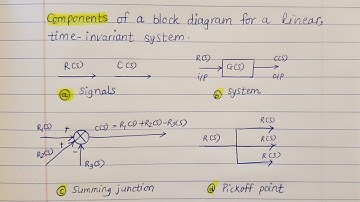 Components of a block diagram for a linear,
time-invariant system.
R(s) C(s)
ⓐ Signals
R(s) G(s) C(s)
i/p o/p
ⓑ System
R1(s) + + C(s) = R1(s) + R2(s) - R3(s)
R2(s) - R3(s)
ⓒ Summing junction
R(s) R(s)
R(s)
R(s)
ⓓ Pickoff point